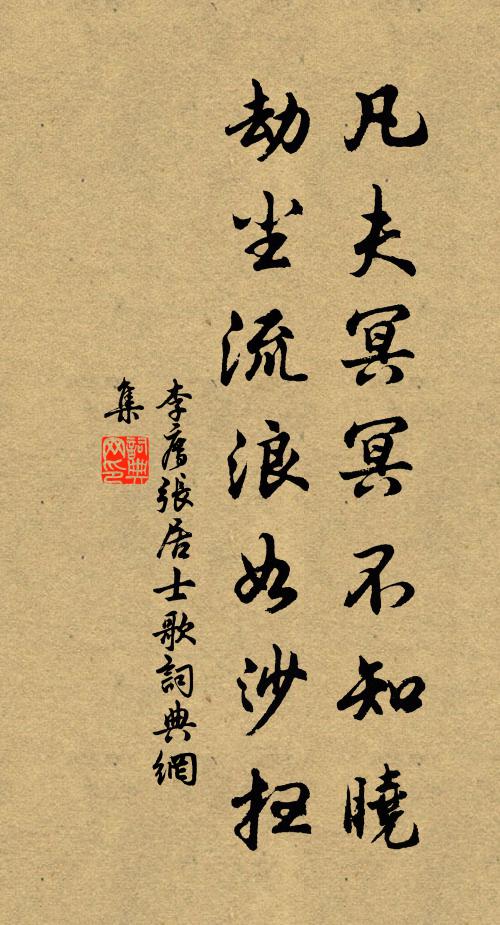 凡夫冥冥不知曉
劫尘流浪如沙扭
李廌張居士歌詞典網
集
詞典
网印